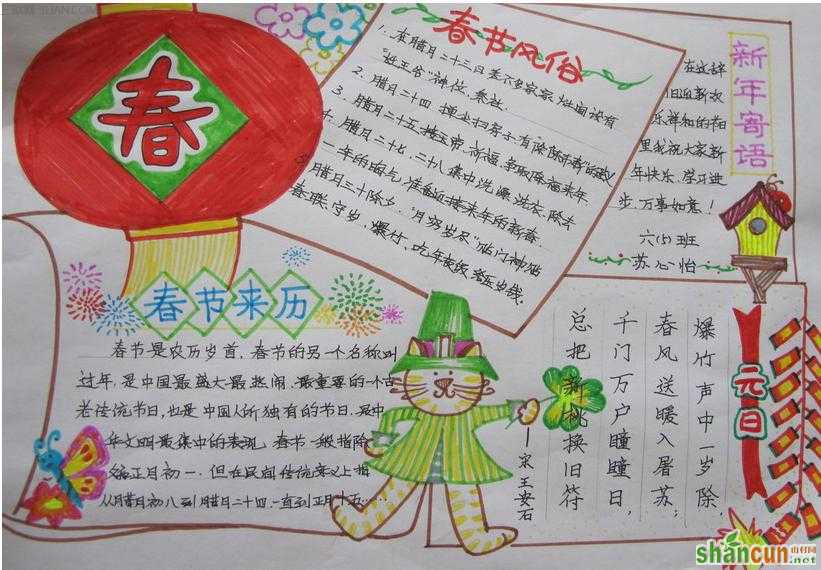 春
春节风俗
1、在腊月二十三日
2、腊月二十四
3、腊月二十五
4、腊月二十七、二十八集中洗澡、洗衣、除去
一年的晦气，准备迎接来年的新春
腊月三十除夕
春联、守岁、爆竹、吃年夜饭、
新年寄语
在这辞
旧迎新欢
乐祥和的节日
里我祝大家新
年快乐、学习进
步、万事如意！
六(5)班
苏心怡
春节来历
春节是农历岁首，春节的另一个名称叫
过年，是中国最盛大最热闹、最重要的一个古
老传统节日，也是中国人所独有的节日，是中
华文明最集中的表现，春节一般指除
正月初一．但在民间传统意义上指
从腊月初八到腊月二十四一直到正月十五……
元日
爆竹声中一岁除，
春风送暖入屠苏；
千门万户瞳瞳日，
总把新桃换旧符
—宋 王安石
shancun
山村网
.net